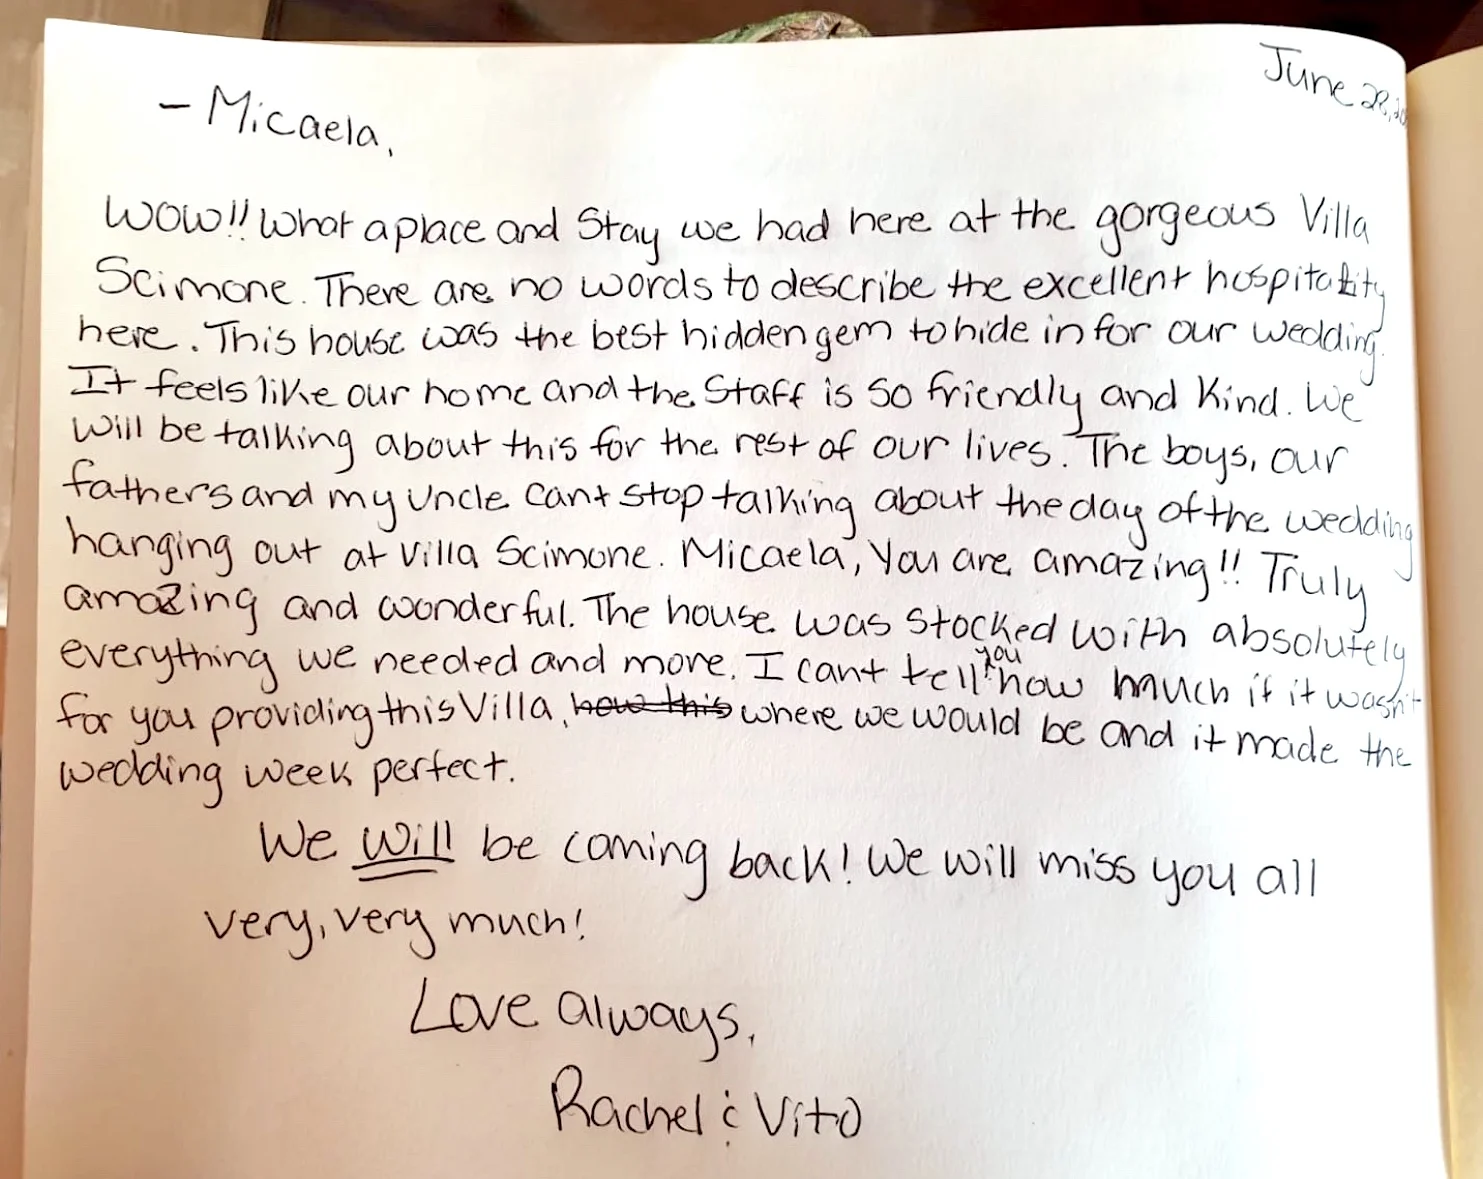 June 28, 20
- Micaela,
WOW!! What a place and Stay we had here at the gorgeous Villa
Scimone. There are no words to describe the excellent hospitality
here. This house was the best hidden gem to hide in for our wedding.
It feels like our home and the Staff is so friendly and kind. We
will be talking about this for the rest of our lives. The boys, our
fathers and my uncle cant stop talking about the day of the wedding
hanging out at Villa Scimone. Micaela, you are amazing!! Truly
amazing and wonderful. The house was stocked with absolutely
everything we needed and more. I cant tell you how much if it wasn't
for you providing this Villa, how this where we would be and it made the
wedding week perfect.
We will be coming back! We will miss you all
very, very much!
Love always,
Rachel & Vito